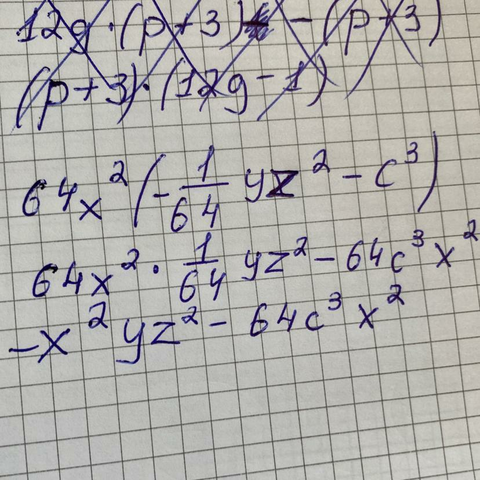 12g·(p+3) - (p+3)
(p+3)·(12g-1)
64x²(-1/64 yz² - c³)
64x² · 1/64 yz² - 64c³x²
-x²yz² - 64c³x²